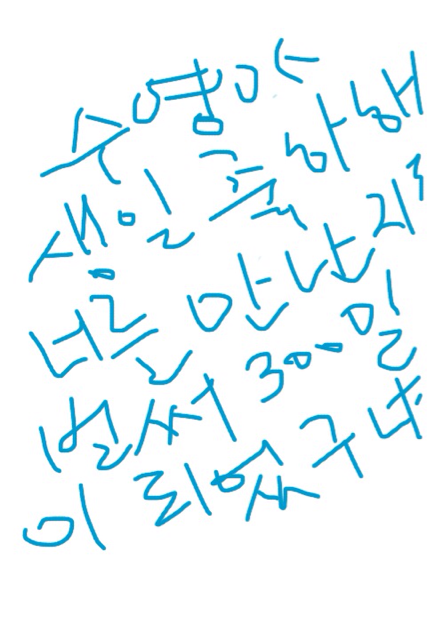 수영아
생일 축하해
너를 만난지
벌써 300일
이 되었구나